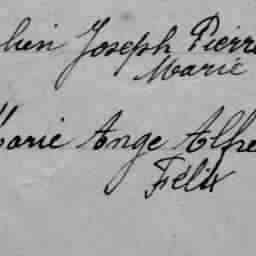 lien Joseph Pierre
Marie
Marie Ange Alfre
Félix